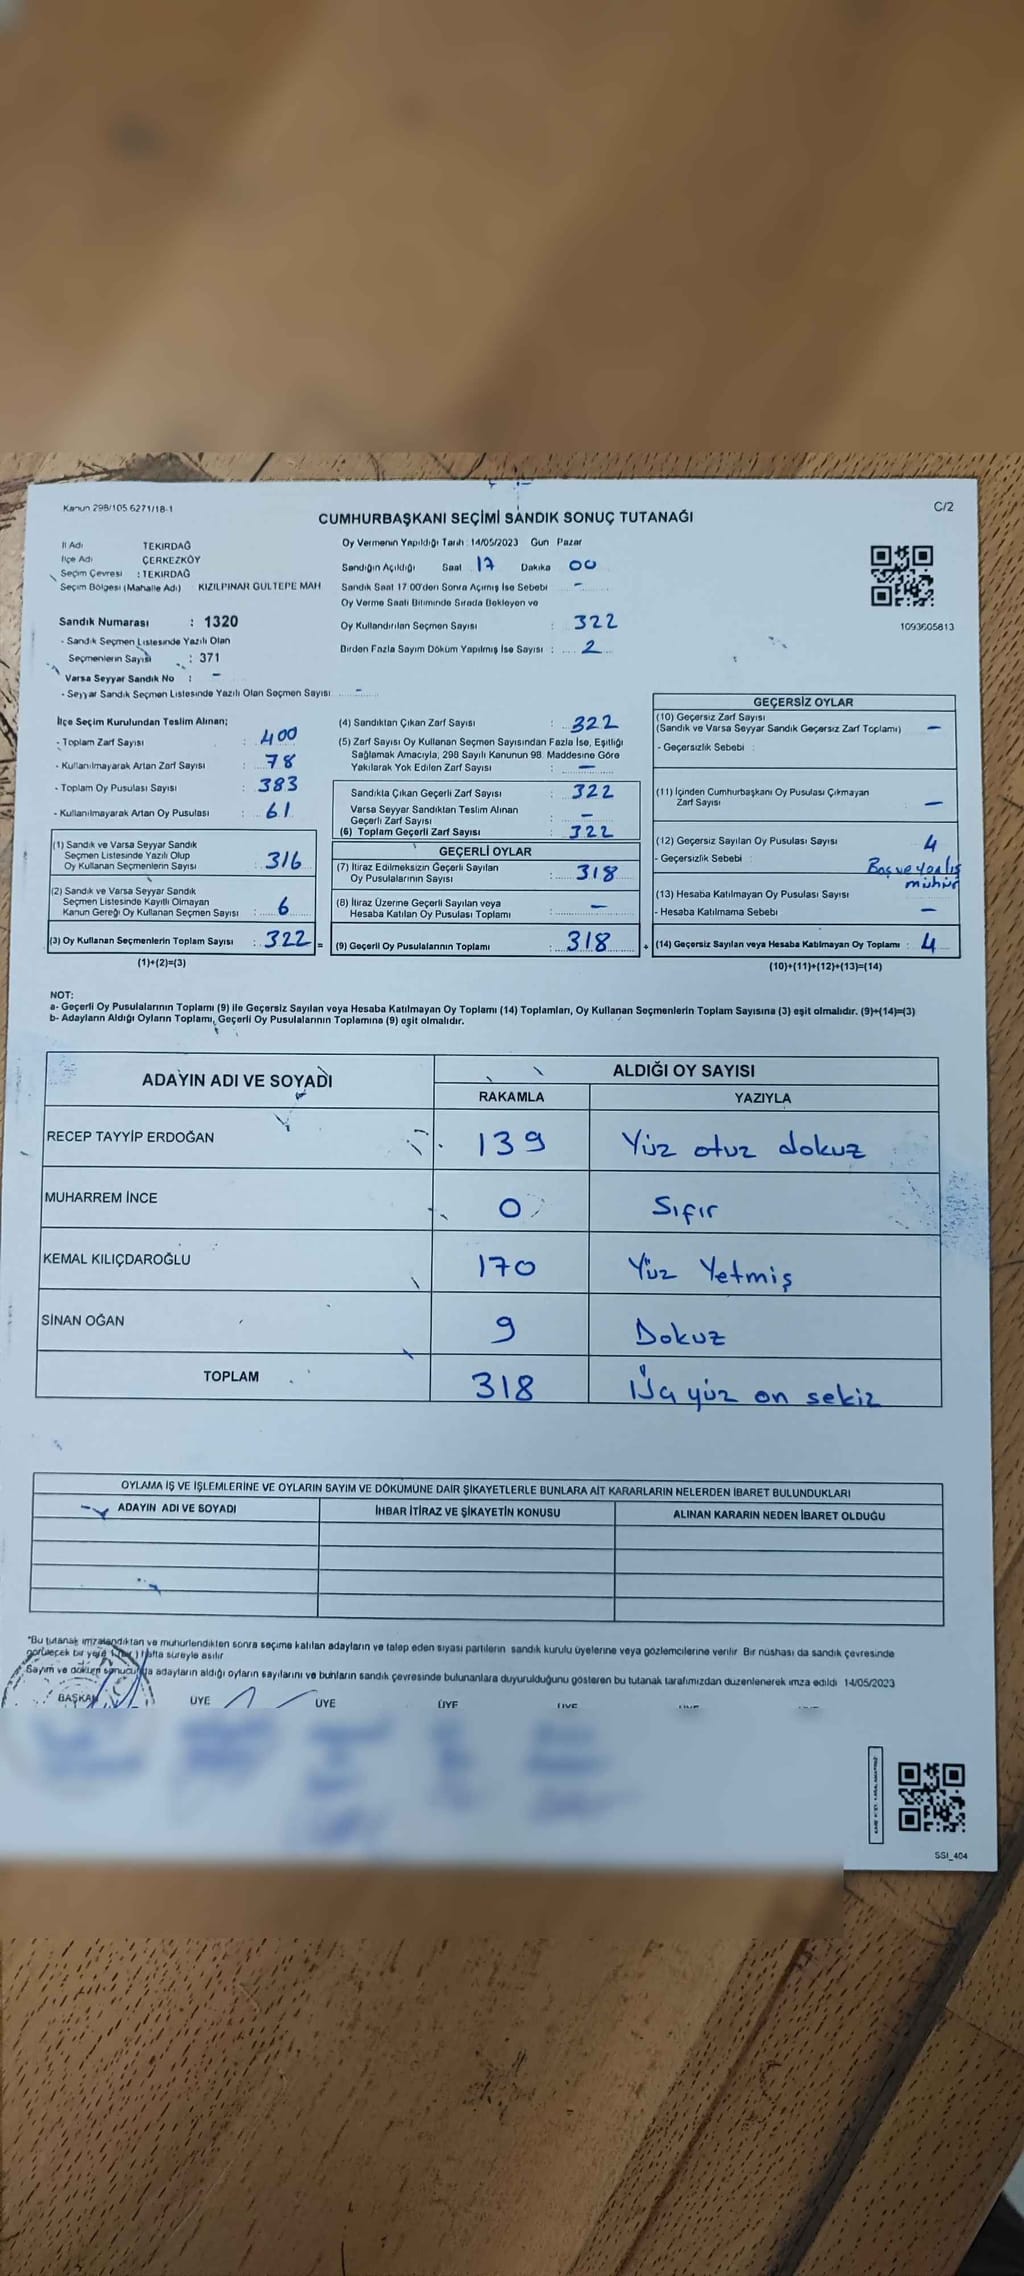 Kanun 298/105 6271/18-1
C/2
CUMHURBAŞKANI SEÇİMİ SANDIK SONUÇ TUTANAĞI
İl Adı TEKİRDAĞ
İlçe Adı ÇERKEZKÖY
Seçim Çevresi : TEKİRDAĞ
Seçim Bölgesi (Mahalle Adı) KIZILPINAR GULTEPE MAH
Sandık Numarası : 1320
- Sandık Seçmen Listesinde Yazılı Olan
Seçmenlerin Sayısı : 371
Varsa Seyyar Sandık No : -
- Seyyar Sandık Seçmen Listesinde Yazılı Olan Seçmen Sayısı -
Oy Vermenin Yapıldığı Tarih : 14/05/2023 Gün Pazar
Sandığın Açıldığı Saat 17 Dakika 00
Sandık Saat 17.00'den Sonra Açımış İse Sebebi -
Oy Verme Saati Bitiminde Sırada Bekleyen ve
Oy Kullandırılan Seçmen Sayısı : 322
Birden Fazla Sayım Döküm Yapılmış İse Sayısı : 2
1093605813
İlçe Seçim Kurulundan Teslim Alınan;
- Toplam Zarf Sayısı : 400
- Kullanılmayarak Artan Zarf Sayısı : 78
- Toplam Oy Pusulası Sayısı : 383
- Kullanılmayarak Artan Oy Pusulası : 61
(1) Sandık ve Varsa Seyyar Sandık
Seçmen Listesinde Yazılı Olup
Oy Kullanan Seçmenlerin Sayısı : 316
(2) Sandık ve Varsa Seyyar Sandık
Seçmen Listesinde Kayıtlı Olmayan
Kanun Gereği Oy Kullanan Seçmen Sayısı : 6
(3) Oy Kullanan Seçmenlerin Toplam Sayısı : 322 =
(1)+(2)=(3)
(4) Sandıktan Çıkan Zarf Sayısı : 322
(5) Zarf Sayısı Oy Kullanan Seçmen Sayısından Fazla İse, Eşitliği
Sağlamak Amacıyla, 298 Sayılı Kanunun 98. Maddesine Göre
Yakılarak Yok Edilen Zarf Sayısı : -
Sandıkla Çıkan Geçerli Zarf Sayısı : 322
Varsa Seyyar Sandıktan Teslim Alınan
Geçerli Zarf Sayısı : -
(6) Toplam Geçerli Zarf Sayısı : 322
GEÇERLİ OYLAR
(7) İtiraz Edilmeksizin Geçerli Sayılan
Oy Pusulalarının Sayısı : 318
(8) İtiraz Üzerine Geçerli Sayılan veya
Hesaba Katılan Oy Pusulası Toplamı : -
(9) Geçerli Oy Pusulalarının Toplamı : 318 +
GEÇERSİZ OYLAR
(10) Geçersiz Zarf Sayısı
(Sandık ve Varsa Seyyar Sandık Geçersiz Zarf Toplamı) -
- Geçersizlik Sebebi :
(11) İçinden Cumhurbaşkanı Oy Pusulası Çıkmayan
Zarf Sayısı -
(12) Geçersiz Sayılan Oy Pusulası Sayısı 4
- Geçersizlik Sebebi : Boş ve yanlış
mühür
(13) Hesaba Katılmayan Oy Pusulası Sayısı
- Hesaba Katılmama Sebebi -
(14) Geçersiz Sayılan veya Hesaba Katılmayan Oy Toplamı : 4
(10)+(11)+(12)+(13)=(14)
NOT:
a- Geçerli Oy Pusulalarının Toplamı (9) ile Geçersiz Sayılan veya Hesaba Katılmayan Oy Toplamı (14) Toplamları, Oy Kullanan Seçmenlerin Toplam Sayısına (3) eşit olmalıdır. (9)+(14)=(3)
b- Adayların Aldığı Oyların Toplamı, Geçerli Oy Pusulalarının Toplamına (9) eşit olmalıdır.
ADAYIN ADI VE SOYADI
ALDIĞI OY SAYISI
RAKAMLA YAZIYLA
RECEP TAYYİP ERDOĞAN 139 Yüz otuz dokuz
MUHARREM İNCE 0 Sıfır
KEMAL KILIÇDAROĞLU 170 Yüz Yetmiş
SİNAN OĞAN 9 Dokuz
TOPLAM 318 yüz on sekiz
OYLAMA İŞ VE İŞLEMLERİNE VE OYLARIN SAYIM VE DÖKÜMÜNE DAİR ŞİKAYETLERLE BUNLARA AİT KARARLARIN NELERDEN İBARET BULUNDUKLARI
ADAYIN ADI VE SOYADI İHBAR İTİRAZ VE ŞİKAYETİN KONUSU ALINAN KARARIN NEDEN İBARET OLDUĞU
"Bu tutanak imzalandıktan ve mühürlendikten sonra seçime katılan adayların ve talep eden siyasi partilerin sandık kurulu üyelerine veya gözlemcilerine verilir Bir nüshası da sandık çevresinde
görülecek bir yere 1 (bir) hafta süreyle asılır
Sayım ve döküm sonucunda adayların aldığı oyların sayılarını ve bunların sandık çevresinde bulunanlara duyurulduğunu gösteren bu tutanak tarafımızdan düzenlenerek imza edildi 14/05/2023
BAŞKAN ÜYE ÜYE ÜYE ÜYE
SSI_404